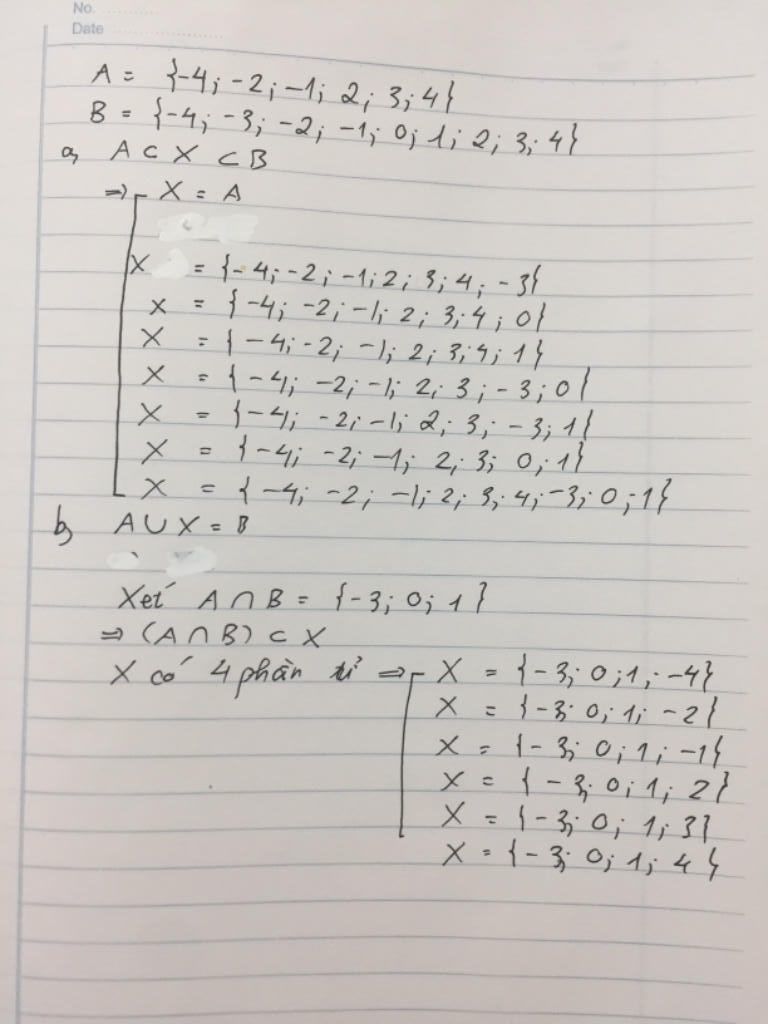 No. ............
Date ........................
A = {-4; -2; -1; 2; 3; 4}
B = {-4; -3; -2; -1; 0; 1; 2; 3; 4}
a, A ⊂ X ⊂ B
=> X = A
X = {-4; -2; -1; 2; 3; 4; -3}
X = {-4; -2; -1; 2; 3; 4; 0}
X = {-4; -2; -1; 2; 3; 4; 1}
X = {-4; -2; -1; 2; 3; -3; 0}
X = {-4; -2; -1; 2; 3; -3; 1}
X = {-4; -2; -1; 2; 3; 0; 1}
X = {-4; -2; -1; 2; 3; 4; -3; 0; 1}
b, A ∪ X = B
Xét A ∩ B = {-3; 0; 1}
=> (A ∩ B) ⊂ X
X có 4 phần tử => X = {-3; 0; 1; -4}
X = {-3; 0; 1; -2}
X = {-3; 0; 1; -1}
X = {-3; 0; 1; 2}
X = {-3; 0; 1; 3}
X = {-3; 0; 1; 4}